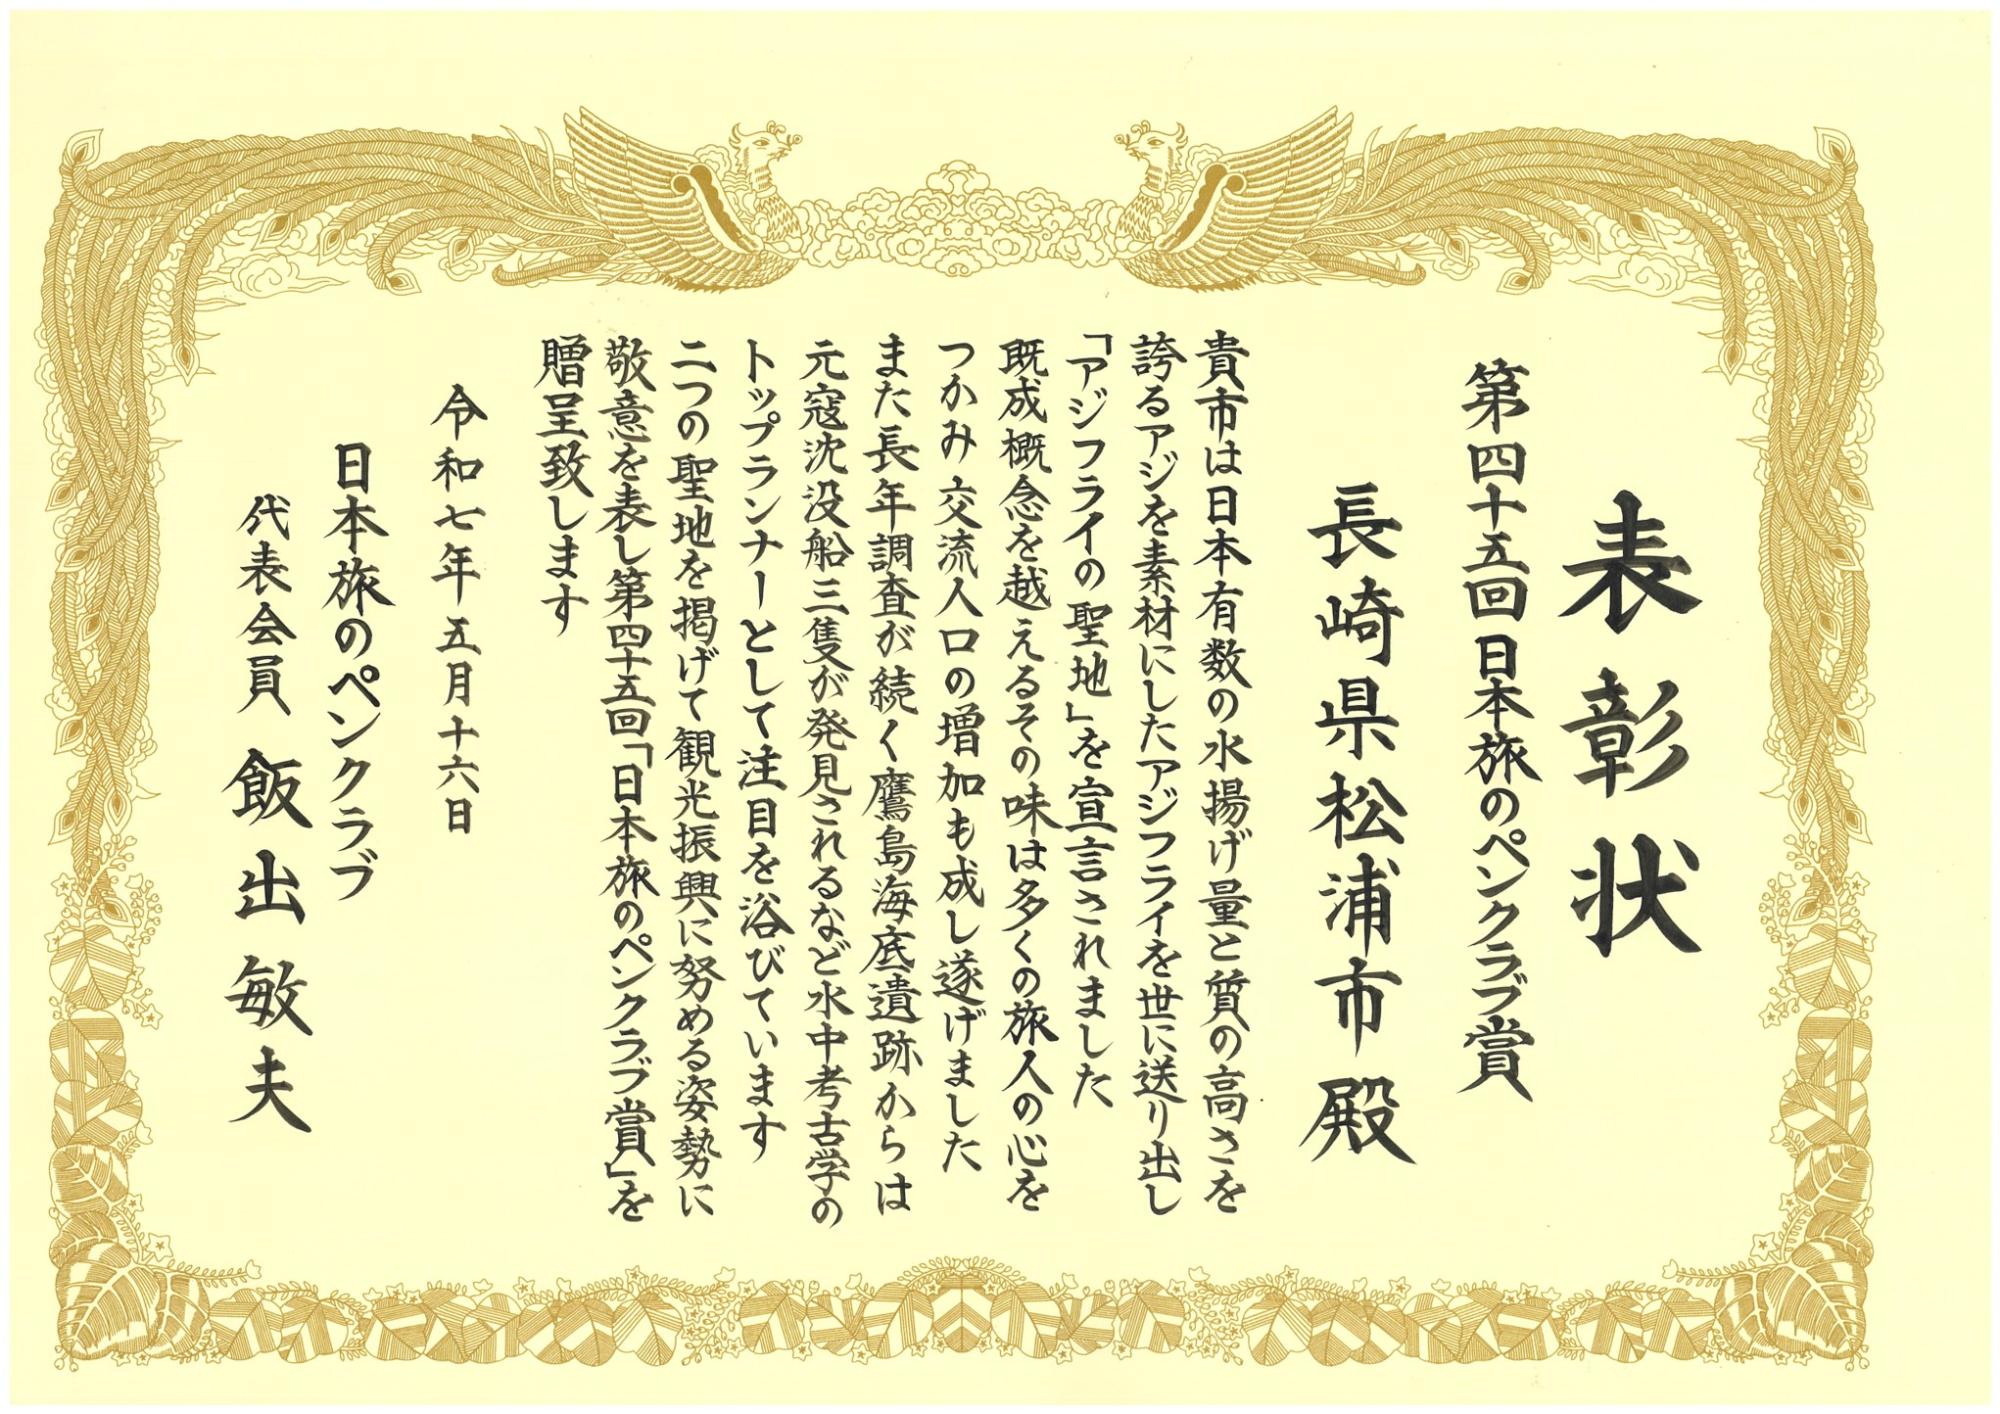 表彰状
第四十五回日本旅のペンクラブ賞
長崎県松浦市殿
貴市は日本有数の水揚げ量と質の高さを
誇るアジを素材にしたアジフライを世に送り出し
「アジフライの聖地」を宣言されました
既成概念を越えるその味は多くの旅人の心を
つかみ交流人口の増加も成し遂げました
また長年調査が続く鷹島海底遺跡からは
元寇沈没船三隻が発見されるなど水中考古学の
トップランナーとして注目を浴びています
二つの聖地を掲げて観光振興に努める姿勢に
敬意を表し第四十五回「日本旅のペンクラブ賞」を
贈呈致します
令和七年五月十六日
日本旅のペンクラブ
代表会員 飯出敏夫